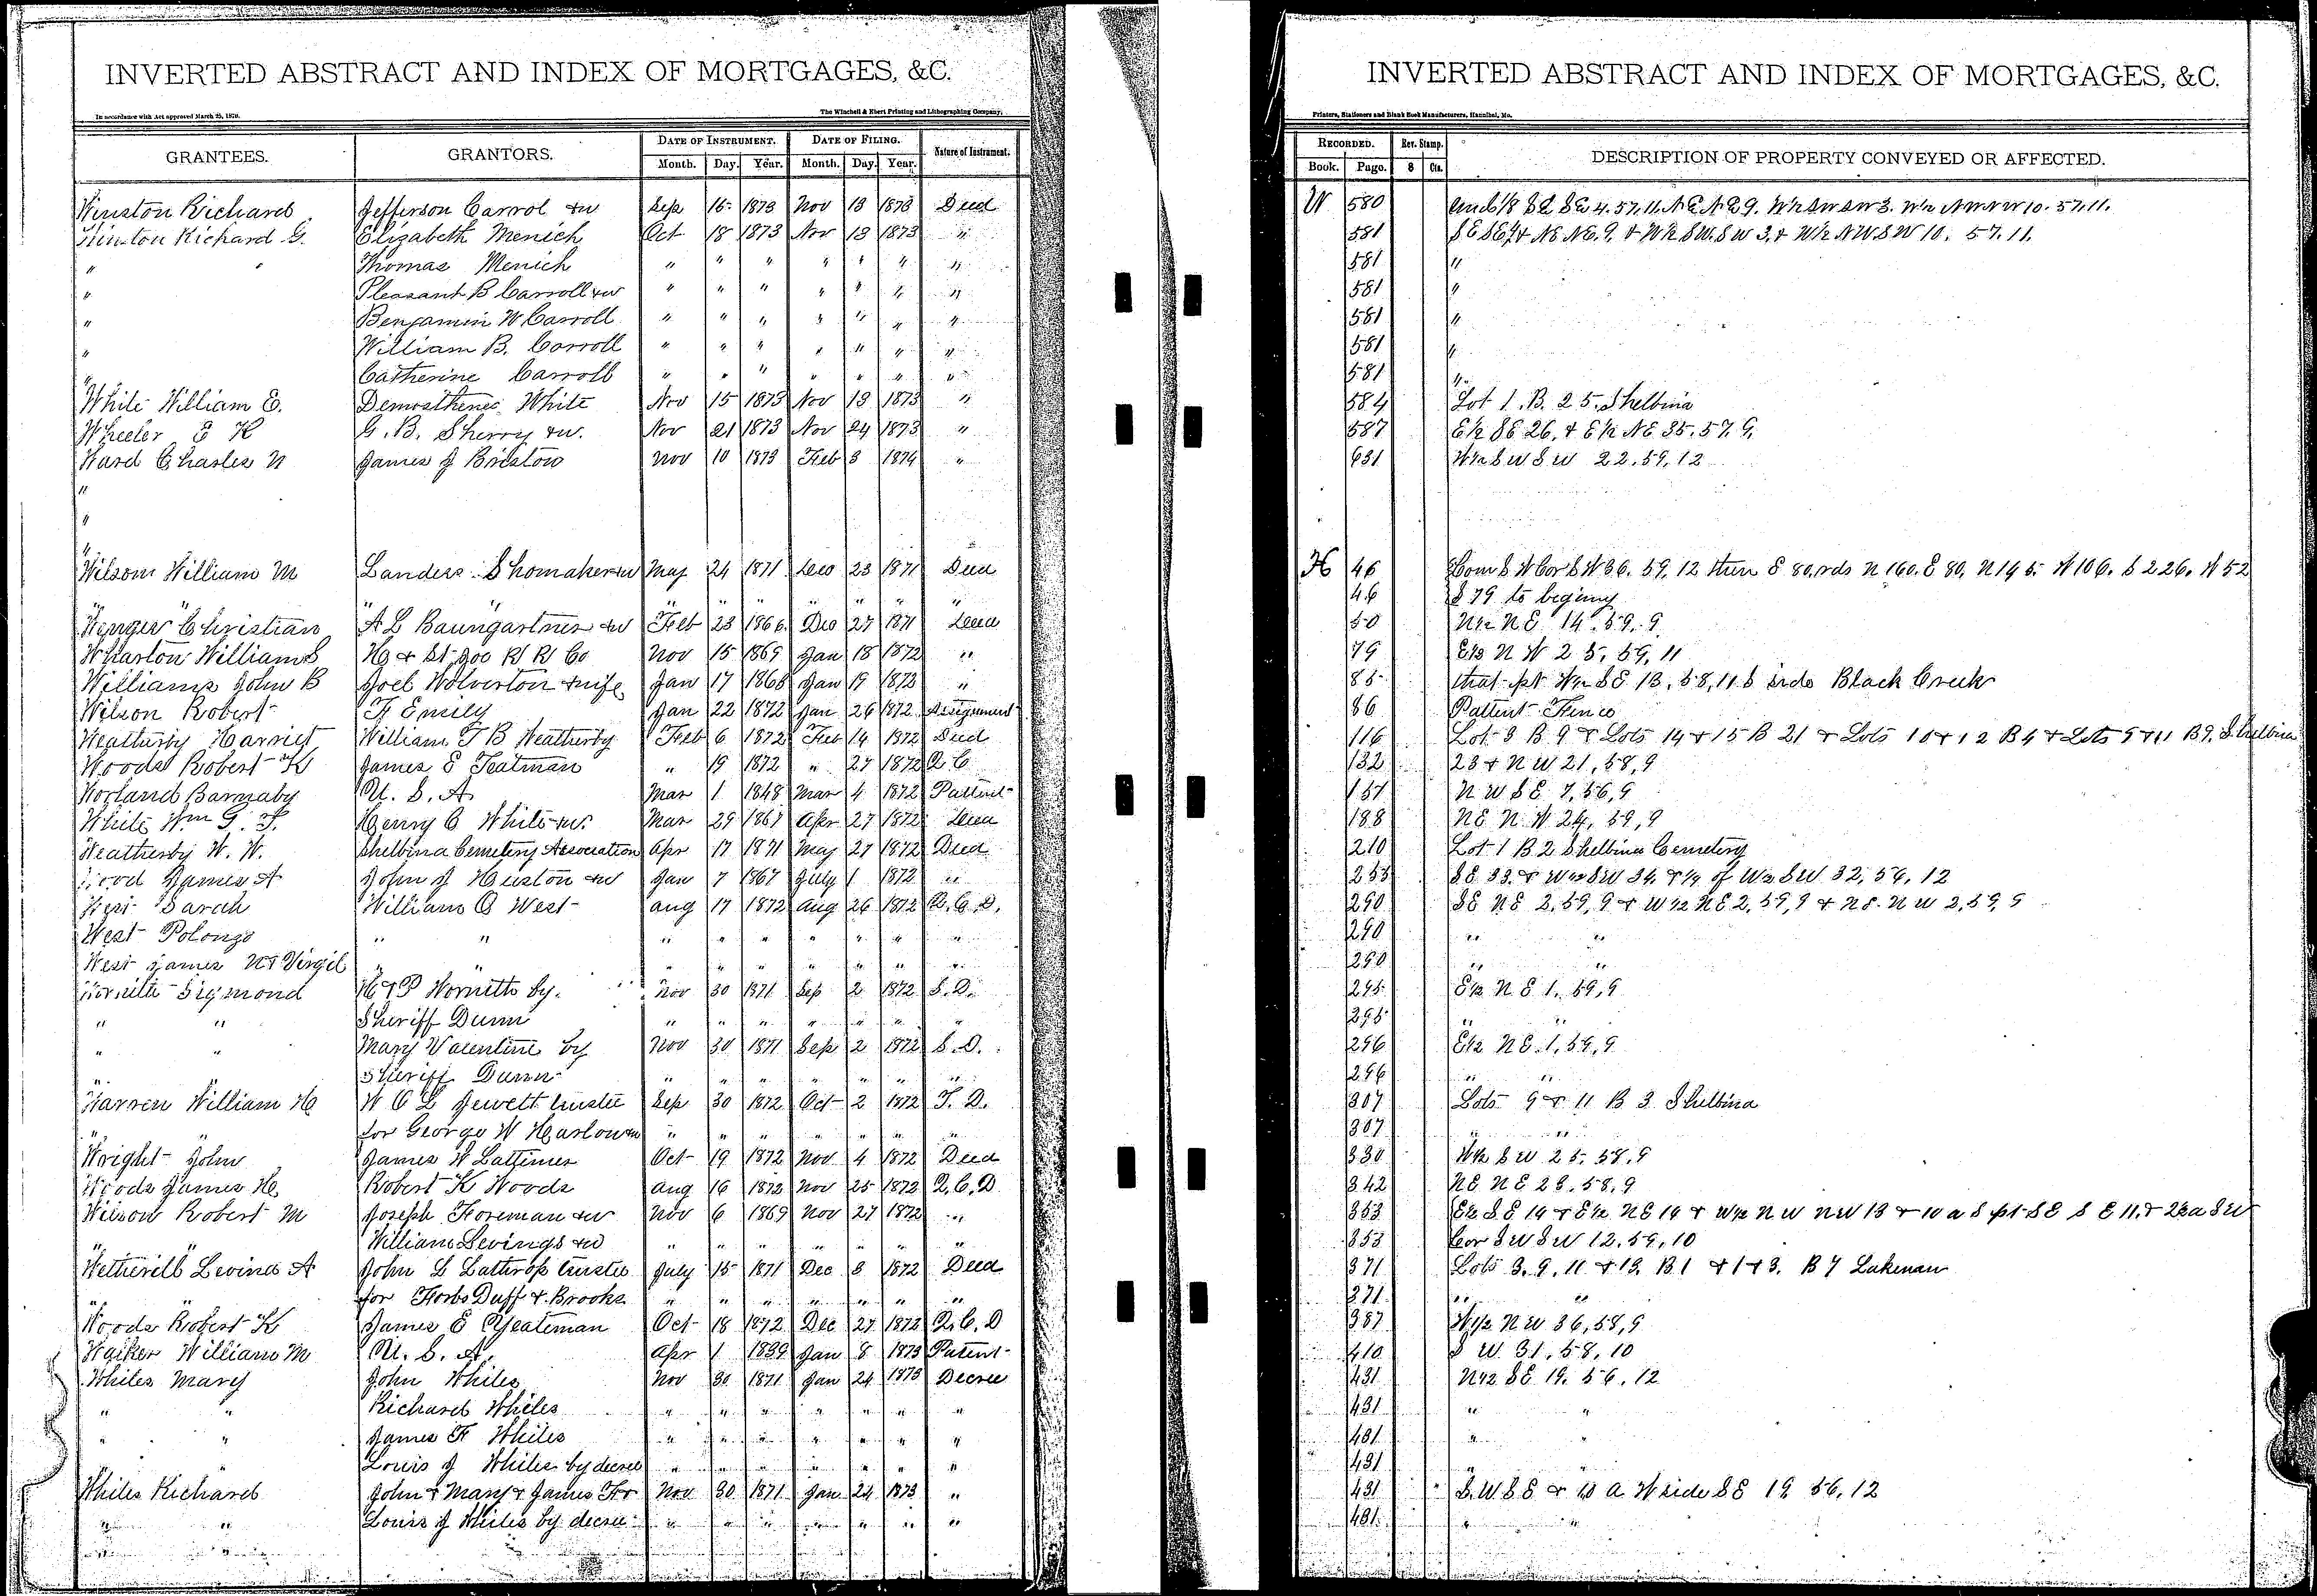 INVERTED ABSTRACT AND INDEX OF MORTGAGES, &C.
In accordance with Act approved March 25, 1870. The Winchell & Ebert Printing and Lithographing Company,
GRANTEES. GRANTORS. DATE OF INSTRUMENT. DATE OF FILING. Nature of Instrument.
Month. Day. Year. Month. Day. Year.
Winston Richard Jefferson Carrol &w Sep 15 1873 Nov 13 1873 Deed
Winston Richard G. Elizabeth Menich Oct 18 1873 Nov 13 1873 "
" " Thomas Menich " " " " " " "
" Pleasant B Carroll &w " " " " " " "
" Benjamin W Carroll " " " " " " "
" William B. Carroll " " " " " " "
" Catherine Carroll " " " " " " "
White William E. Demosthenes White Nov 15 1873 Nov 13 1873 "
Wheeler E K G. B. Sherry &w. Nov 21 1873 Nov 24 1873 "
Ward Charles N James J Bristow Nov 10 1873 Feb 3 1874 "
"
"
"
Wilson William M Landers Shomaker &w May 24 1871 Dec 23 1871 Deed
" " " " " " " " " "
Wenger Christian A L Baumgartner &w Feb 23 1866 Dec 27 1871 Deed
Wharton William S H & St Joe R R Co Nov 15 1869 Jan 18 1872 "
Williams John B Joel Wolverton & wife Jan 17 1868 Jan 19 1872 "
Wilson Robert F Emily Jan 22 1872 Jan 26 1872 Assignment
Weatherby Harriet William T B Weatherby Feb 6 1872 Feb 14 1872 Deed
Woods Robert K James E Teatman " 19 1872 " 27 1872 Q C
Worland Barnaby U. S. A. Mar 1 1848 Mar 4 1872 Pattent
White Wm G. T. Henry C White &w. Mar 29 1867 Apr 27 1872 Deed
Weatherby W. W. Shelbina Cemetery Association Apr 17 1871 May 27 1872 Deed
Wood James A John J Huston &w Jan 7 1867 July 1 1872 "
West Sarah William O West Aug 17 1872 Aug 26 1872 Q. C. D.
West Polongo " " " " " " " " "
West James W & Virgil " " " " " " " " "
Sigmond H & P Wornith by. Nov 30 1871 Sep 2 1872 S. D.
" " Sheriff Dunn " " " " " " "
" " Mary Valentine by Nov 30 1871 Sep 2 1872 S. D.
" Sheriff Dunn " " " " " " "
Warren William H W O L Jewett trustee Sep 30 1872 Oct 2 1872 T. D.
" for George W Harlow &w " " " " " " "
Wright John James W Lattimer Oct 19 1872 Nov 4 1872 Deed
Woods James H. Robert K Woods Aug 16 1872 Nov 25 1872 Q. C. D
Wilson Robert M Joseph Foreman &w Nov 6 1869 Nov 27 1872 "
" " William Levings &w " " " " " " "
Wetherill Levina A John L Lathrop trustee July 15 1871 Dec 3 1872 Deed
" " for Forbs Duff & Brooks " " " " " " "
Woods Robert K James E Yeateman Oct 18 1872 Dec 27 1872 Q. C. D
Walker William M U. S. A. Apr 1 1839 Jan 8 1873 Patent
Whiles Mary John Whiles Nov 30 1871 Jan 24 1873 Decree
" " Richard Whiles " " " " " " "
" " James F Whiles " " " " " " "
" Louis J Whiles by decree " " " " " " "
Whiles Richard John & Mary & James F Nov 30 1871 Jan 24 1873 "
" " Louis J Whiles by decree " " " " " " "
" "
INVERTED ABSTRACT AND INDEX OF MORTGAGES, &C.
Printers, Stationers and Blank Book Manufacturers, Hannibal, Mo.
RECORDED. Rev. Stamp. DESCRIPTION OF PROPERTY CONVEYED OR AFFECTED.
Book. Page. $ Cts.
W 580 Und 1/8 SE SE 4. 57. 11. NE NE 9. W½ SW SW 3. W½ NW NW 10. 57. 11.
581 SE SE 4 & NE NE. 9. & W½ SW. SW 3. & W½ NW. SW 10. 57. 11.
581 "
581 "
581 "
581 "
581 "
584 Lot 1. B. 25. Shelbina
587 E½ SE 26, & E½ NE 35. 57. 9.
631 W½ SW SW 22. 59. 12
H 46 Com S W Cor SW 36. 59. 12 then E 80. rds N 160. E 80. N 145. W 106. S 226. W 52
46 S 79 to beginny
50 N½ NE 14. 59. 9
79 E½ N W 25, 59, 11
85 that pt W½ SE 13, 58, 11 S side Black Creek
86 Pattent Fence
116 Lot 3 B 9 & Lots 14 & 15 B 21 & Lots 10 & 12 B 4 & Lots 9 & 11 B 9. Shelbina
132 23 & N W 21, 58, 9
157 N W S E 7, 56, 9
188 NE N. W 24, 59, 9
210 Lot 1 B 2 Shelbina Cemetery
253 SE 33. & W½ SW 34. & ¼ of W½ SW 32, 56, 12
290 SE NE 2, 59, 9 & W½ NE 2, 59, 9 & NE. N W 2, 59, 9
290 " "
290 " "
295 E½ N E 1, 59, 9
295 " "
296 E½ N E. 1, 59, 9
296 " "
307 Lots 9 & 11 B 3 Shelbina
307 " "
330 W½ SW 25, 58, 9
342 NE NE 28. 58. 9
353 E½ S. E 14 & E½ NE 14 & W½ N W NW 13 & 10 a S pt SE S E 11. & 2½ a SW
353 Cor SW SW 12, 59, 10
371 Lots 3. 9. 11 & 13. B 1 & 1 & 3. B 7 Lakenan
371 " "
387 W½ N W 36, 58, 9
410 S W. 31, 58, 10
431 N½ SE 19. 56. 12
431 " "
431 " "
431 "
431 S. W S E & 10 a W side SE 19 56, 12
431 " "